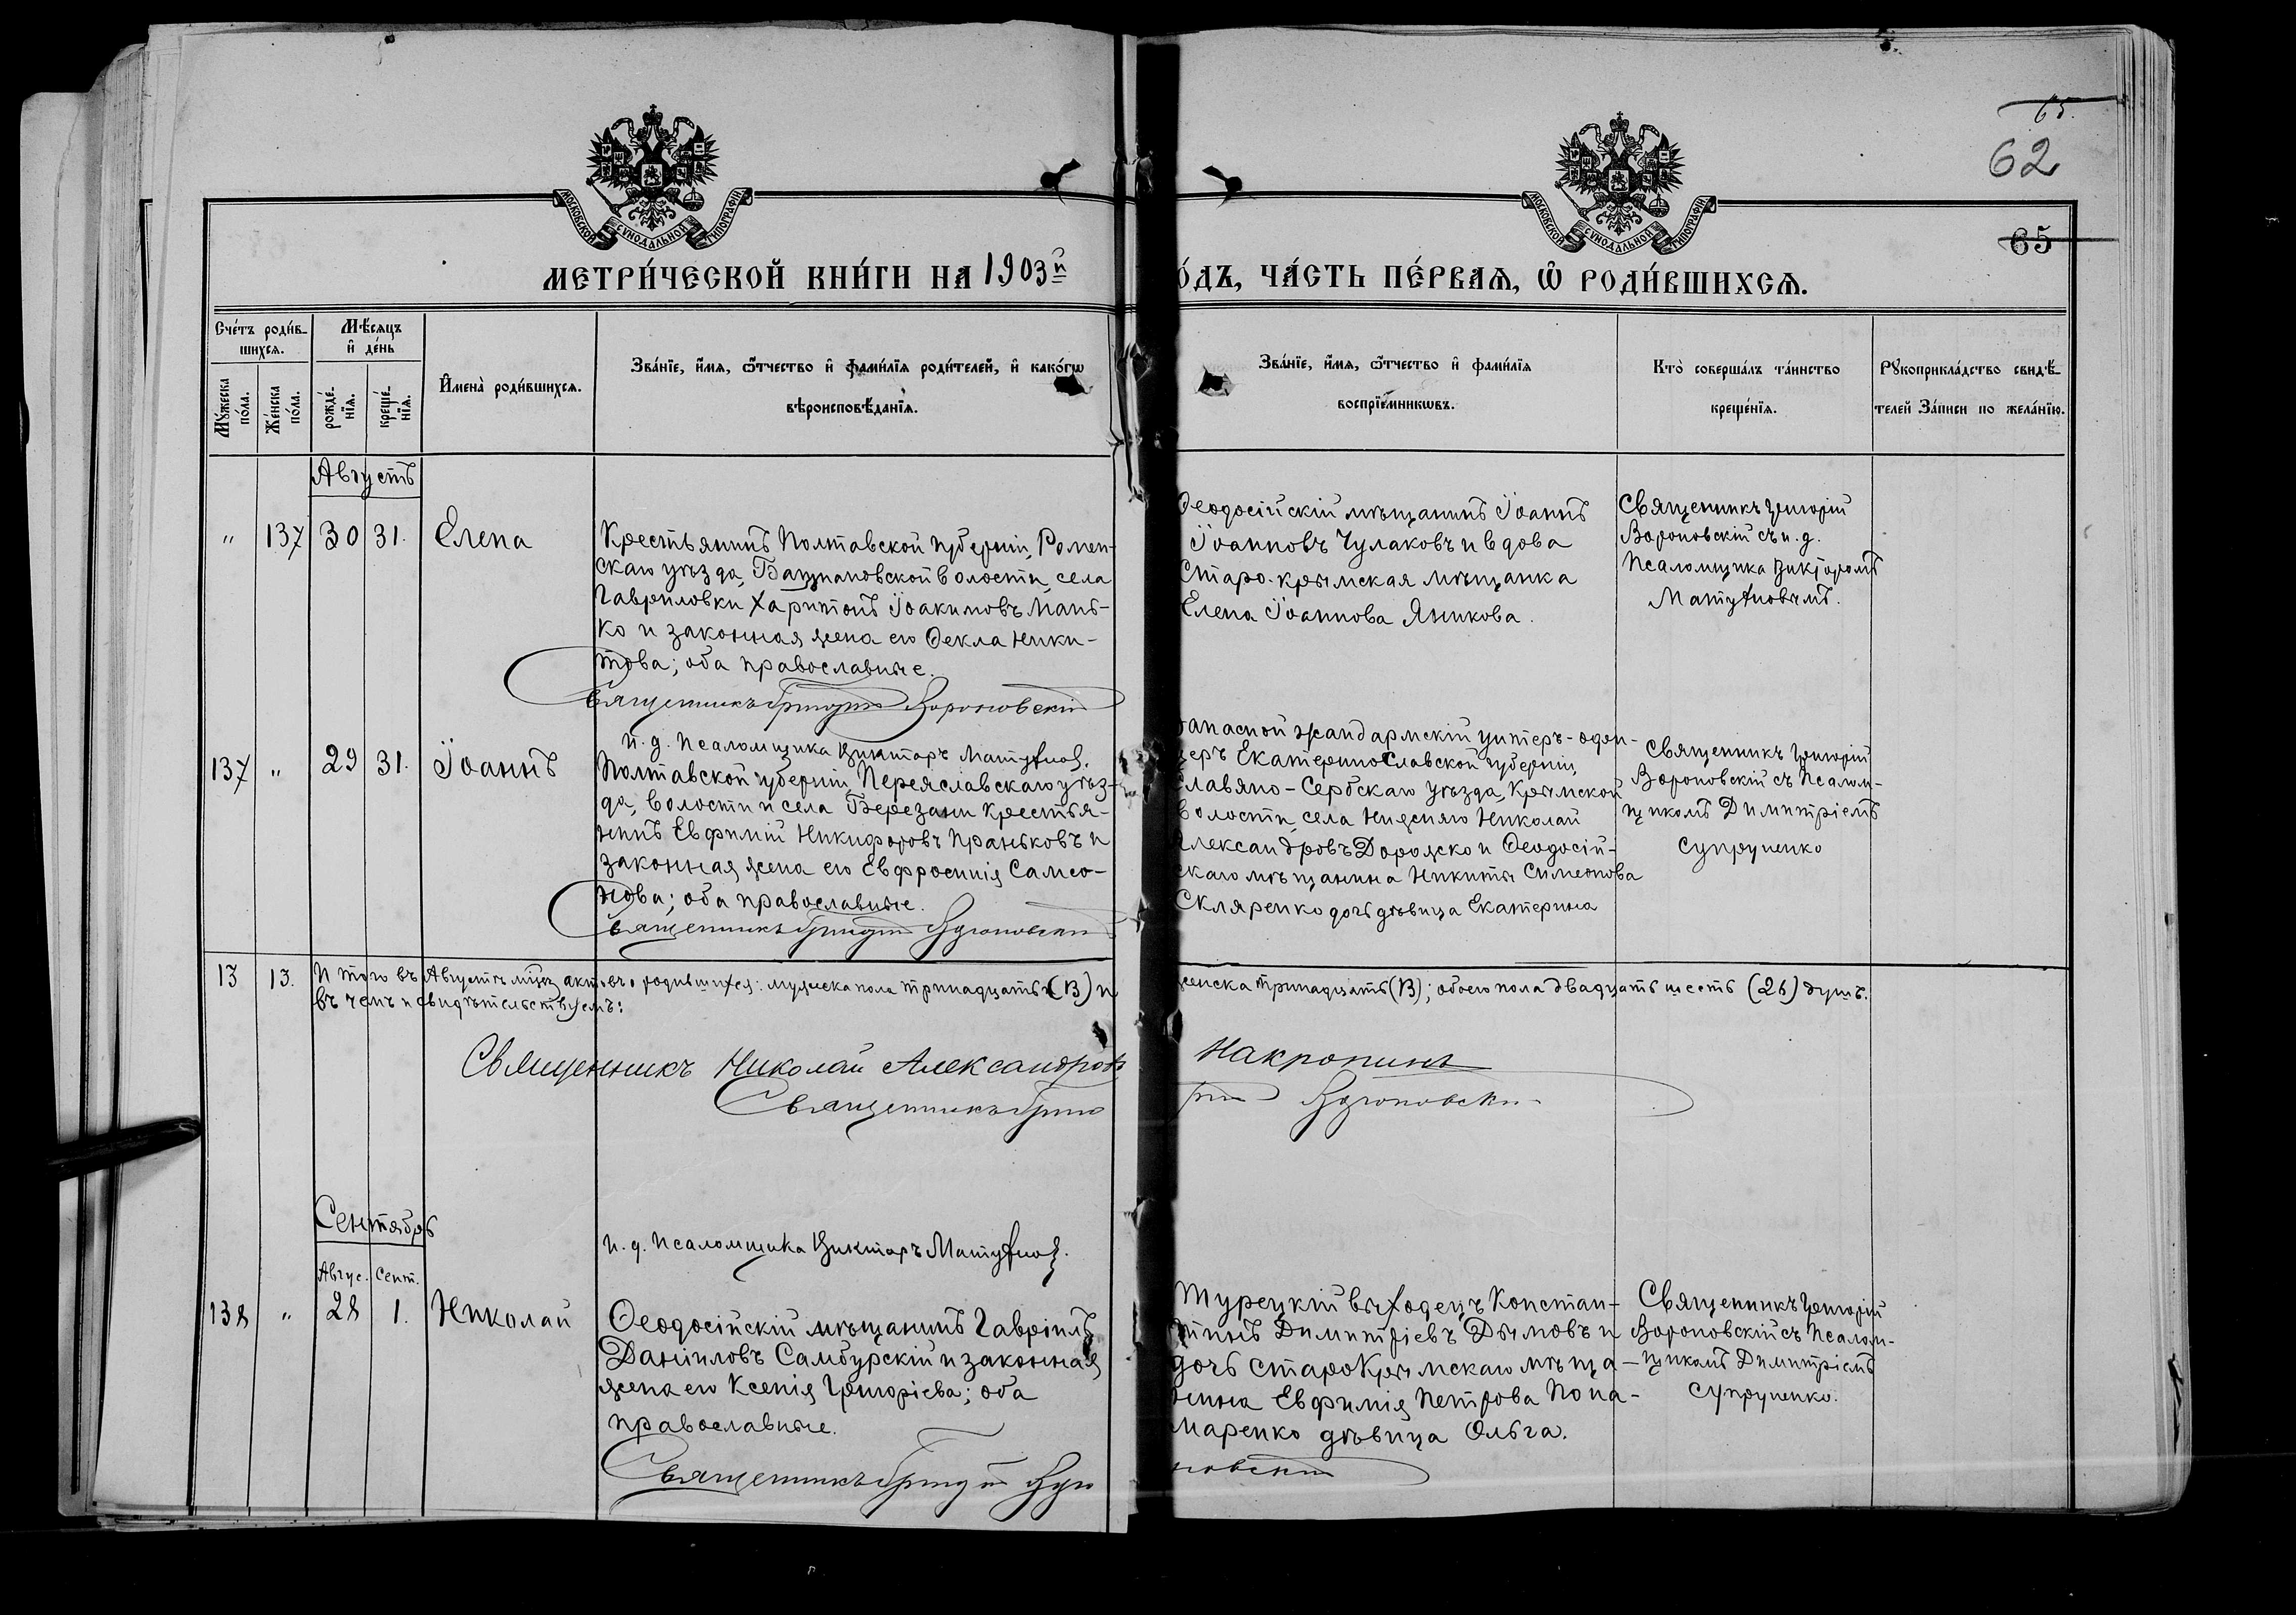 65.
62
65
МОСКОВСКОЙ СѴНОДАЛЬНОЙ ТИПОГРАФІИ
МОСКОВСКОЙ СѴНОДАЛЬНОЙ ТИПОГРАФІИ
МЕТРИ́ЧЕСКОЙ КНИ́ГИ НА 1903й
О́ДЪ, ЧА́СТЬ ПЕ́РВАѦ, Ѿ РОДИ́ВШИХСѦ.
Сче́тъ роди́в-
шихсѧ.
Мѣ́сѧцъ
и҆ де́нь
Мꙋ́жеска
по́ла.
Же́нска
по́ла.
рожде́-
нїѧ.
креще́-
нїѧ.
И҆мена̀ роди́вшихсѧ.
Зва́нїе, и҆́мѧ, ѻ҆́тчество и҆ фами́лїѧ роди́телей, и҆ како́гѡ
вѣроисповѣ́данїѧ.
Зва́нїе, и҆́мѧ, ѻ҆́тчество и҆ фами́лїѧ
воспрїе́мникѡвъ.
Кто̀ соверша́лъ та́инство
креще́нїѧ.
Рꙋкоприкла́дство свидѣ́-
телей За́писи по жела́нїю.
Августъ
" 137 30 31. Елена
Крестьянинъ Полтавской губерніи, Ромен-
скаго уѣзда, волости, села
Гавриловки Харитонъ Іоакимовъ Мань-
ко и законная жена его Ѳекла Ники-
това; оба православные.
Священникъ Григорій Вороновскій
и. д. Псаломщика Викторъ
Ѳеодосійскій мѣщанинъ Іоаннъ
Іоанновъ Чулаковъ и вдова
Старо-крымская мѣщанка
Елена Іоаннова Яникова.
Священникъ Григорій
Вороновскій съ и. д.
Псаломщика Викторомъ
137 " 29 31. Іоаннъ
Полтавской губерніи, Переяславскаго уѣз-
да, волости и села Березани крестья-
нинъ Евфимій Никифоровъ Праньковъ и
законная жена его Евфросинія Самсо-
нова; оба православные.
Священникъ Григорій Вороновскій
запасной жандармскій унтеръ-офи-
церъ Екатеринославской губерніи,
Славяно-Сербскаго уѣзда, Крымской
волости, села Нижняго Николай
Александровъ Дорожко и Ѳеодосій-
скаго мѣщанина Никиты Симеонова
Скляренко дочь дѣвица Екатерина
Священникъ Григорій
Вороновскій съ Псалом-
щикомъ Димитріемъ
Супруненко
13 13. Итого въ Августѣ мцѣ актовъ о родившихся: мужеска пола тринадцать (13) и
женска тринадцать (13); обоего пола двадцать шесть (26) душъ.
въ чемъ и свидѣтельствуемъ:
Священникъ Николай Александровъ Накропинъ
Священникъ Григорій Вороновскій
и. д. Псаломщика Викторъ
Сентябрь
Авгус. Сент.
138 " 28 1. Николай
Ѳеодосійскій мѣщанинъ Гавріилъ
Даніиловъ Самбурскій и законная
жена его Ксенія Григоріева; оба
православные.
Священникъ Григорій Вороновскій
Турецкій выходецъ Констан-
тинъ Димитріевъ Дымовъ и
дочь старокрымскаго мѣща-
нина Евфимія Петрова Пона-
маренко дѣвица Ольга.
Священникъ Григорій
Вороновскій съ Псалом-
щикомъ Димитріемъ
Супруненко.